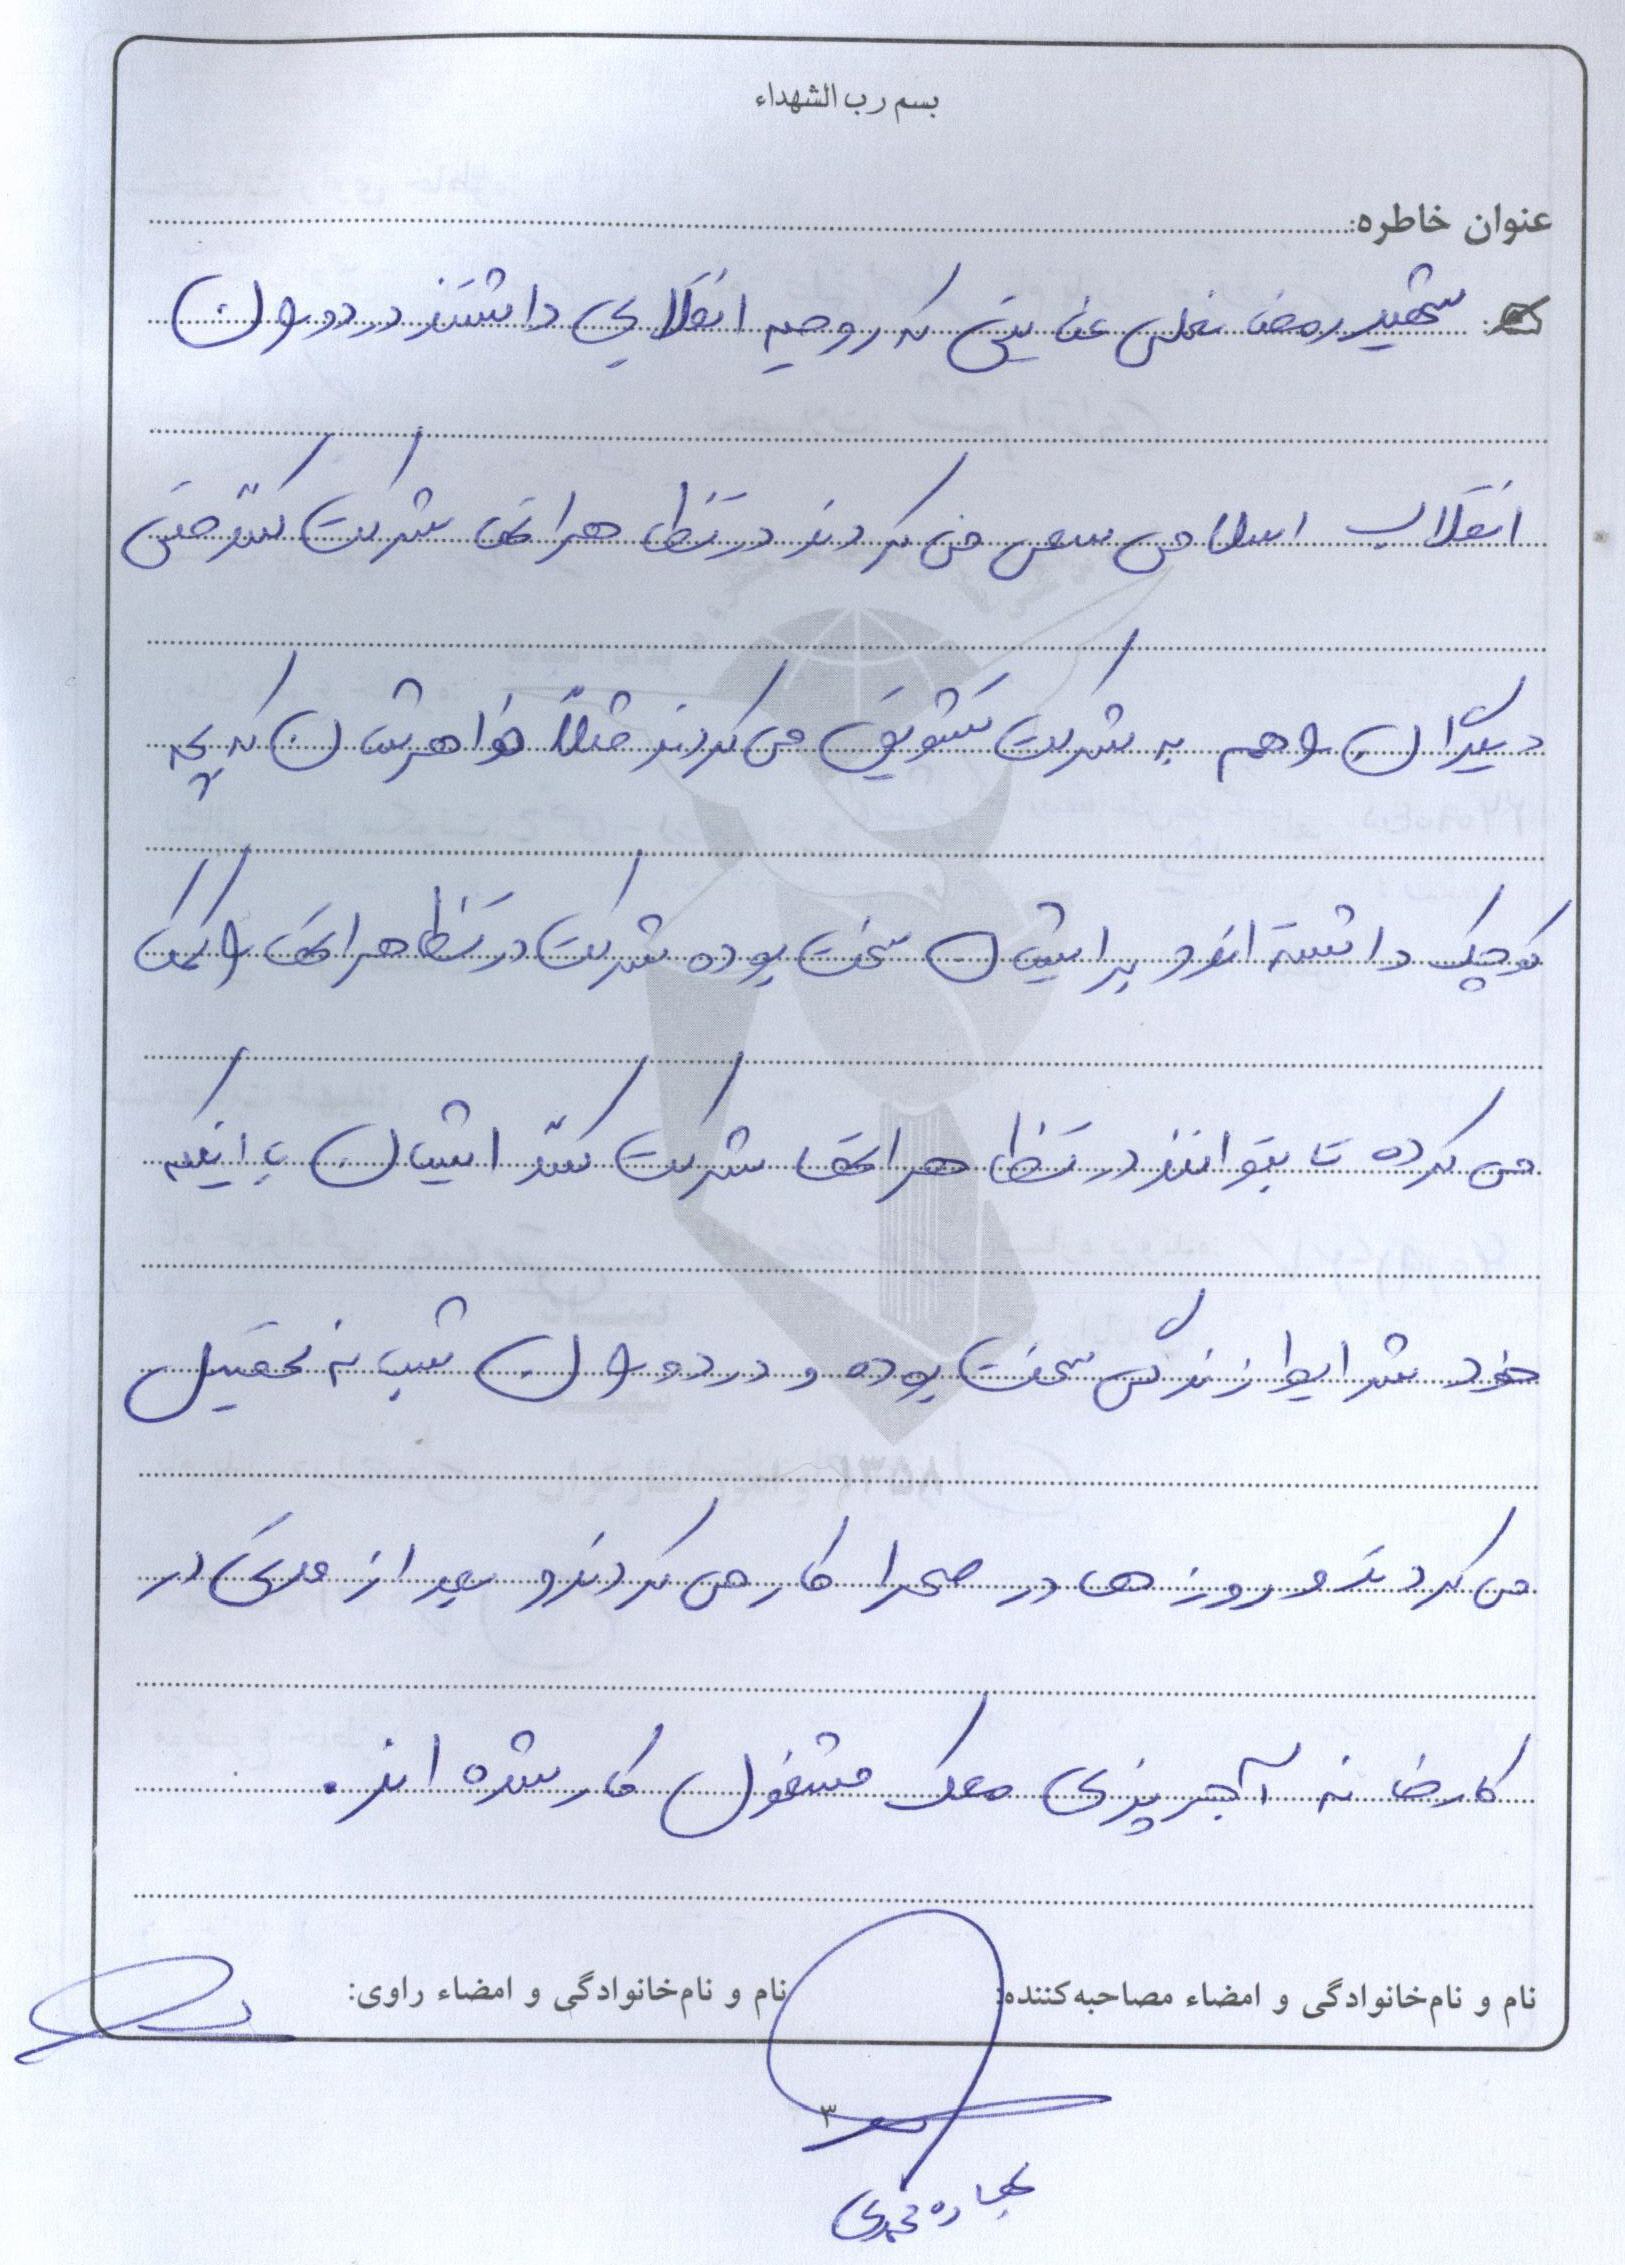 بسم رب الشهداء
عنوان خاطره:
شهید رمضانعلی عنایتی که روحیه انقلابی داشتند در دوران
انقلاب اسلامی سعی می کردند در تظاهراتها شرکت کنند حتی
دیگران را هم به شرکت تشویق می کردند مثلاً خواهرشان که بچه
کوچک داشته اند و برایشان سخت بوده شرکت در تظاهراتها را کمک
می کرده تا بتوانند در تظاهراتها شرکت کنند ایشان با اینکه
خود شرایط زندگی سختی بوده و در دوران شبانه تحصیل
می کردند و روزها در صحرا کار می کردند و بعد از مدتی در
کارخانه آجرپزی مشغول کار شده اند.
نام و نام‌خانوادگی و امضاء مصاحبه‌کننده: نام و نام‌خانوادگی و امضاء راوی:
۳